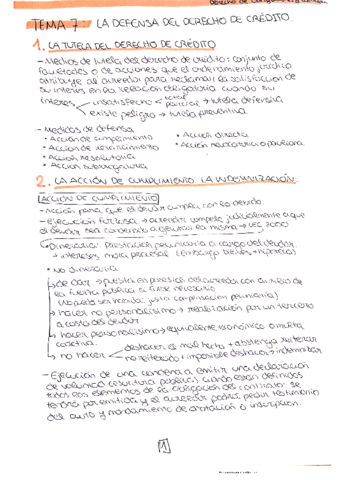 TEMA 7 LA DEFENSA DEL DERECHO DE CRÉDITO.
1. LA TUTELA DEL DERECHO DE CRÉDITO
- Medios de tutela del derecho de crédito: conjunto de
facultades o de acciones que el ordenamiento jurídico
atribuye al acreedor para reclamar la satisfacción de
su interés en la relación obligatoria cuando su
interés insatisfecho total parcial → tutela defensiva
existe peligro → tutela preventiva.
- Medidas de defensa
• Acción de cumplimiento • Acción directa
• Acción de resarcimiento • Acción revocatoria o pauliana
• Acción resolutoria
• Acción subrogatoria
2. LA ACCIÓN DE CUMPLIMIENTO. LA INDEMNIZACIÓN.
ACCIÓN DE CUMPLIMIENTO
- Acción para que el deudor cumpla con lo debido.
- Ejecución forzosa → acreedor compele judicialmente a que
el deudor sea condenado a ejecutar la misma → LEC 2000
• Dineraria: Prestación pecuniaria a cargo del deudor
+ intereses mora procesal (embargo bienes + hipoteca)
• No dineraria
de dar → puesta en posesión del acreedor con auxilio de
la fuerza pública si fuese necesario
(No pueda ser habida: justa compensación pecuniaria)
hacer no personalísimo → realización por un tercero
a costa del deudor
hacer personalísimo → equivalente económico o multa
coercitiva.
no hacer deshacer el mal hecho + abstenga reiterar
no reiterado + imposible deshacer → indemnizar
- Ejecución de una condena a emitir una declaración
de voluntad (escritura pública) cuando están definidos
todos los elementos de la obligación del contrato se
tendrá por emitida y el acreedor podrá pedir testimonio
del auto y mandamiento de anotación o inscripción.
1